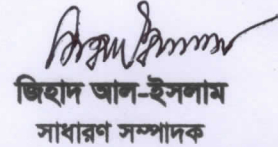 জিহাদ আল-ইসলাম
সাধারণ সম্পাদক